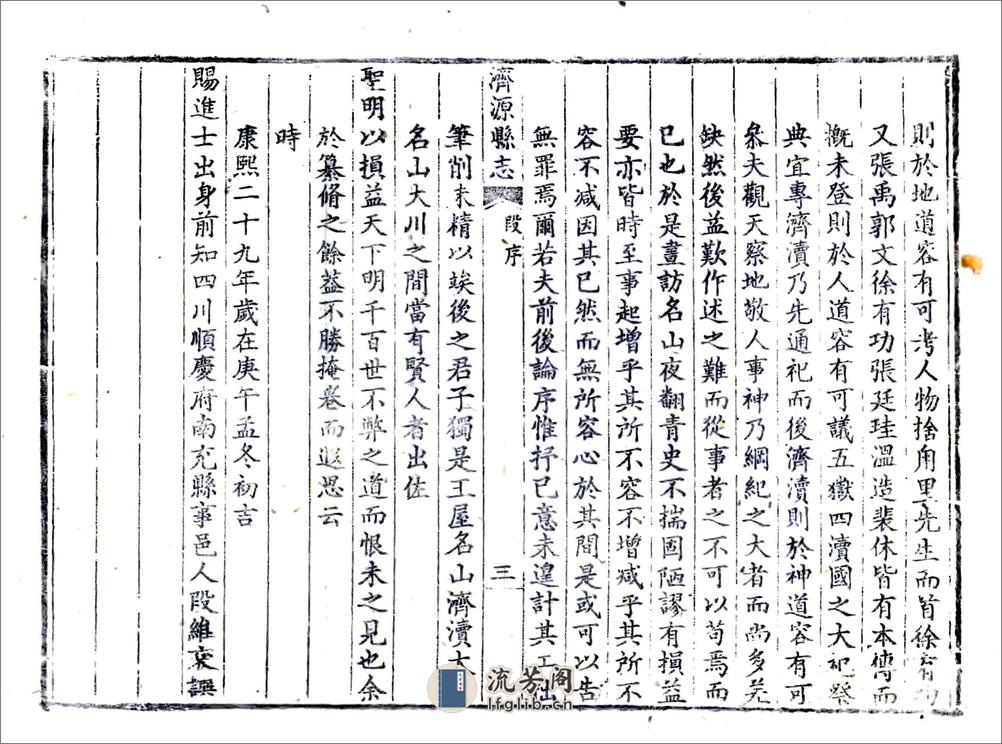 則於地道容有可考人物捨甪里先生而首徐
又張禹郭文徐有功張廷珪溫造裴休皆有本傳而
概未登則於人道容有可議五嶽四瀆國之大祀祭
典宜專濟瀆乃先通祀而後濟瀆則於神道容有可
叅夫觀天察地敬人事神乃綱紀之大者而尚多差
缺然後益歎作述之難而從事者之不可以苟焉而
已也於是晝訪名山夜翻青史不揣固陋謬有損益
要亦皆時至事起增乎其所不容不增减乎其所不
容不减因其已然而無所容心於其間是或可以告
無罪焉爾若夫前後論序惟抒已意未遑計其工拙
濟源縣志
段序
三
筆削未精以竢後之君子獨是王屋名山濟瀆大
名山大川之間當有賢人者出佐
聖明以損益天下明千百世不弊之道而恨未之見也余
於纂脩之餘葢不勝掩卷而遐思云
時
康熙二十九年歲在庚午孟冬初吉
賜進士出身前知四川順慶府南充縣事邑人段維袞譔
流芳阁
lfglib.cn